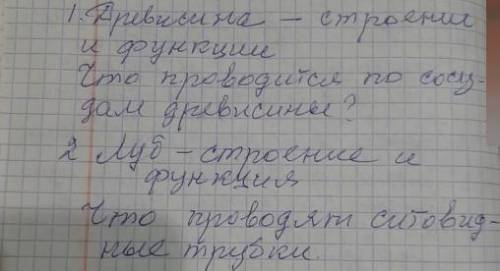 1. Древисина – строение
и функции
Что проводится по сосу-
дам древисины?
2 Луб – строение и
функция
Что проводят ситовид-
ные трубки.